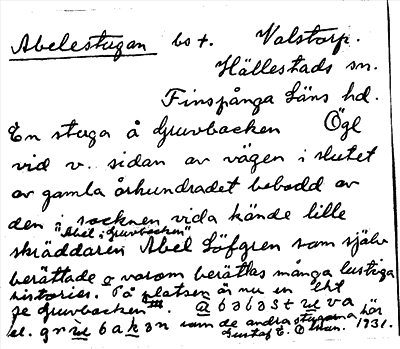 Abelestugan bst. Valstorp.
Hällestads sn.
Finspånga Läns hd.
En stuga å Gruvbacken Ögl
vid v. sidan av vägen i slutet
av gamla århundradet bebodd av
den i socknen vida kände lille
"Abel i Gruvbacken"
skräddaren Abel Löfgren som själv
berättade o varom berättas många lustiga
historier. På platsen är nu en lht
se Gruvbacken
el. som de andra stugorna här
Gustaf E. 1931.